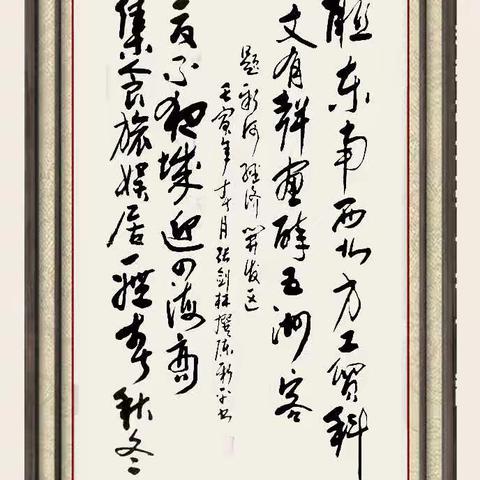 联东南西北方工贸科
文有声画醉五洲客
题新河经济开发区
壬寅年春月张剑林撰陈新平书
集食旅娱居一体春秋冬
夏不夜城迎四海商